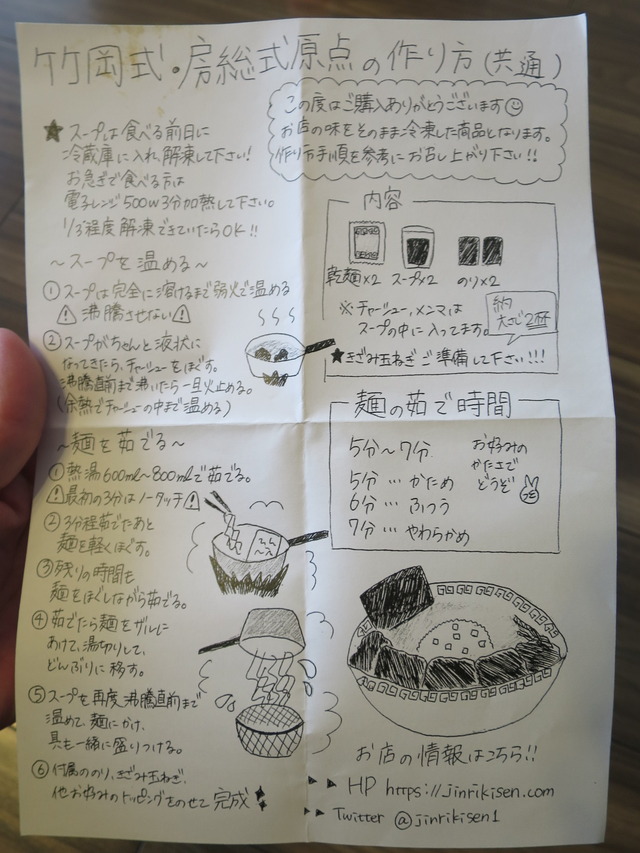 竹岡式・房総式原点の作り方(共通)
この度はご購入ありがとうございます
お店の味をそのまま冷凍した商品となります。
作り方手順を参考にお召し上がり下さい!!
★スープは食べる前日に
冷蔵庫に入れ、解凍して下さい!
お急ぎで食べる方は
電子レンジ500w3分加熱して下さい。
1/3程度解凍できていたらOK!!
~スープを温める~
①スープは完全に溶けるまで弱火で温める
沸騰させない
②スープがちゃんと液状に
なってきたら、チャーシューをほぐす。
沸騰直前まで沸いたら一旦火止める。
(余熱でチャーシューの中まで温める)
内容
乾麺×2 スープ×2 のり×2
※チャーシュー、メンマは
スープの中に入ってます。
約
大さじ2杯
★きざみ玉ねぎご準備して下さい!!!
~麺を茹でる~
①熱湯600ml~800mlで茹でる。
最初の3分はノータッチ
②3分程茹でたあと
麺を軽くほぐす。
③残りの時間も
麺をほぐしながら茹でる。
④茹でたら麺をザルに
あけて、湯切りして、
どんぶりに移す。
⑤スープを再度沸騰直前まで
温めて、麺にかけ、
具も一緒に盛りつける。
⑥付属ののり、きざみ玉ねぎ、
他お好みのトッピングをのせて完成
麺の茹で時間
5分~7分
5分…かため
6分…ふつう
7分…やわらかめ
お好みの
かたさで
どうぞ
お店の情報はこちら!!
▶▶ HP https://jinrikisen.com
▶▶ Twitter @jinrikisen1